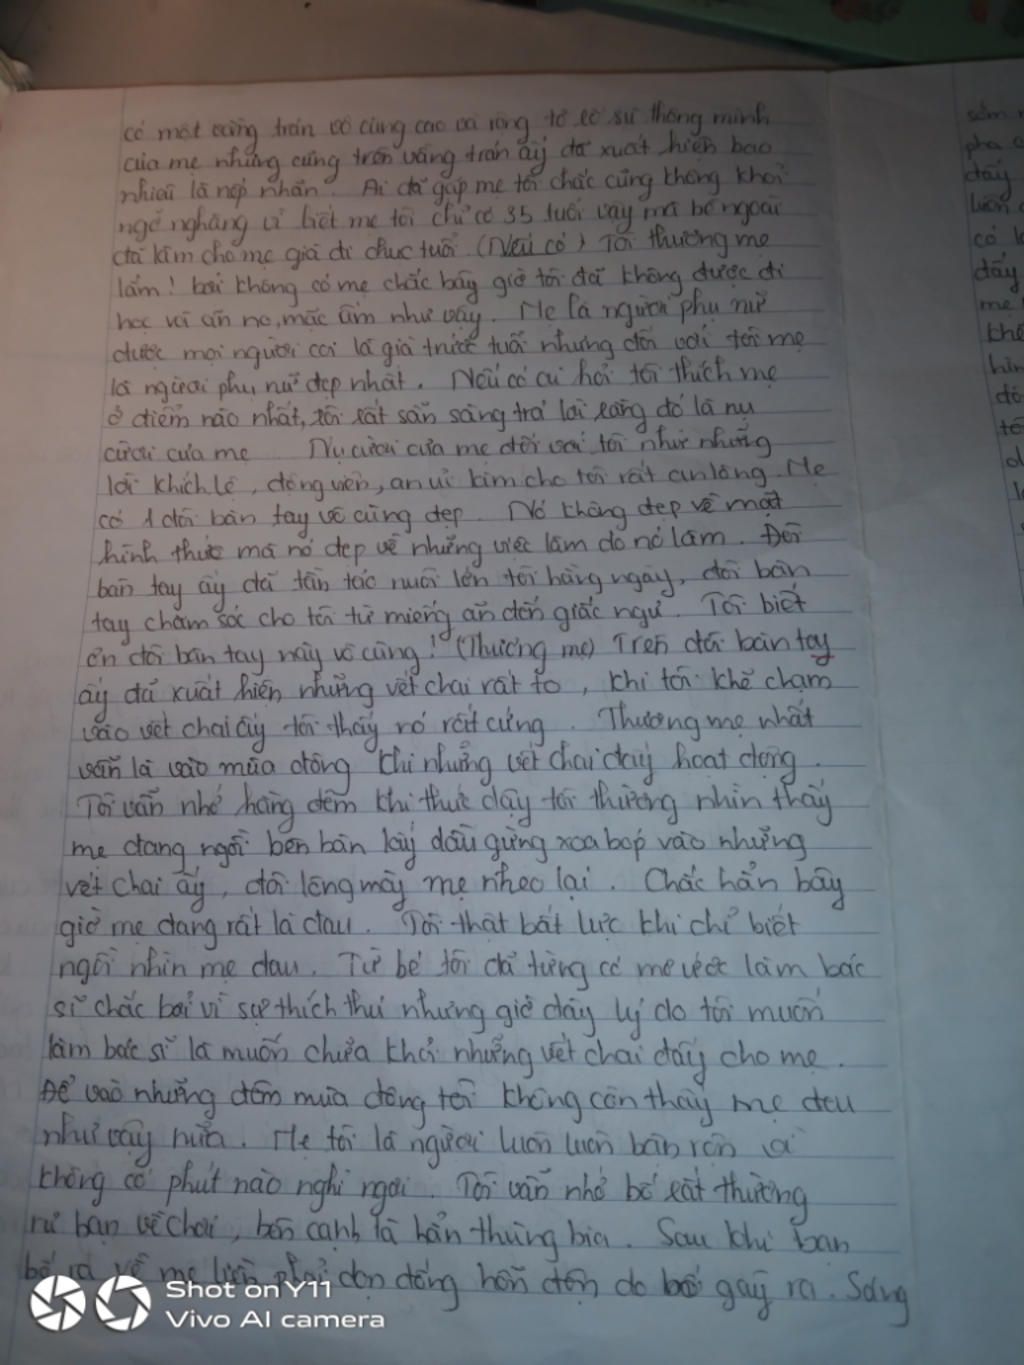 có một vầng trán vô cùng cao và rộng tỏ rõ sự thông minh
của mẹ nhưng cũng trên vầng trán ấy đã xuất hiện bao
nhiêu là nếp nhăn. Ai đã gặp mẹ tôi chắc cũng không khỏi
ngỡ nghàng vì biết mẹ tôi chỉ có 35 tuổi vậy mà bề ngoài
đã kím cho mẹ già đi chục tuổi. (Nếu có) Tôi thương mẹ
lắm! bởi không có mẹ chắc bây giờ tôi đã không được đi
học và ăn no, mặc ấm như vậy. Mẹ là người phụ nữ
được mọi người coi là già trước tuổi nhưng đối với tôi mẹ
là người phụ nữ đẹp nhất. Nếu có ai hỏi tôi thích mẹ
ở điểm nào nhất, tôi rất sẵn sàng trả lời rằng đó là nụ
cười của mẹ Nụ cười của mẹ đối với tôi như những
lời khích lệ, động viên, an ủi kím cho tôi rất an lòng. Mẹ
có 1 đôi bàn tay vô cùng đẹp. Nó không đẹp về mặt
hình thức mà nó đẹp về những việc làm do nó làm. Đôi
bàn tay ấy đã tần tảo nuôi lớn tôi hàng ngày, đôi bàn
tay chăm sóc cho tôi từ miếng ăn đến giấc ngủ. Tôi biết
ơn đôi bàn tay này vô cùng! (Thương mẹ) Trên đôi bàn tay
ấy đã xuất hiện những vết chai rất to, khi tôi khẽ chạm
vào vết chai ấy tôi thấy nó rất cứng. Thương mẹ nhất
vẫn là vào mùa đông khi những vết chai đấy hoạt động.
Tôi vẫn nhớ hằng đêm khi thức dậy tôi thường nhìn thấy
mẹ đang ngồi bên bàn lấy dầu gừng xoa bóp vào những
vết chai ấy, đôi lông mày mẹ nheo lại. Chắc hẳn bây
giờ mẹ đang rất là đau. Tôi thật bất lực khi chỉ biết
ngồi nhìn mẹ đau. Từ bé tôi đã từng có mơ ước làm bác
sĩ chắc bởi vì sự thích thú nhưng giờ đây lý do tôi muốn
làm bác sĩ là muốn chữa khỏi những vết chai đấy cho mẹ.
Để vào những đêm mùa đông tôi không còn thấy mẹ đau
như vậy nữa. Mẹ tôi là người luôn luôn bận rộn và
không có phút nào nghỉ ngơi. Tôi vẫn nhớ bố rất thường
rủ bạn về chơi, bên cạnh là hẳn thùng bia. Sau khi bạn
bố ra về mẹ liền phải dọn đống hỗn độn do bố gây ra. Sáng
sớm
pha
đấy
luôn
có
đấy
mẹ
Shot on Y11
Vivo AI camera